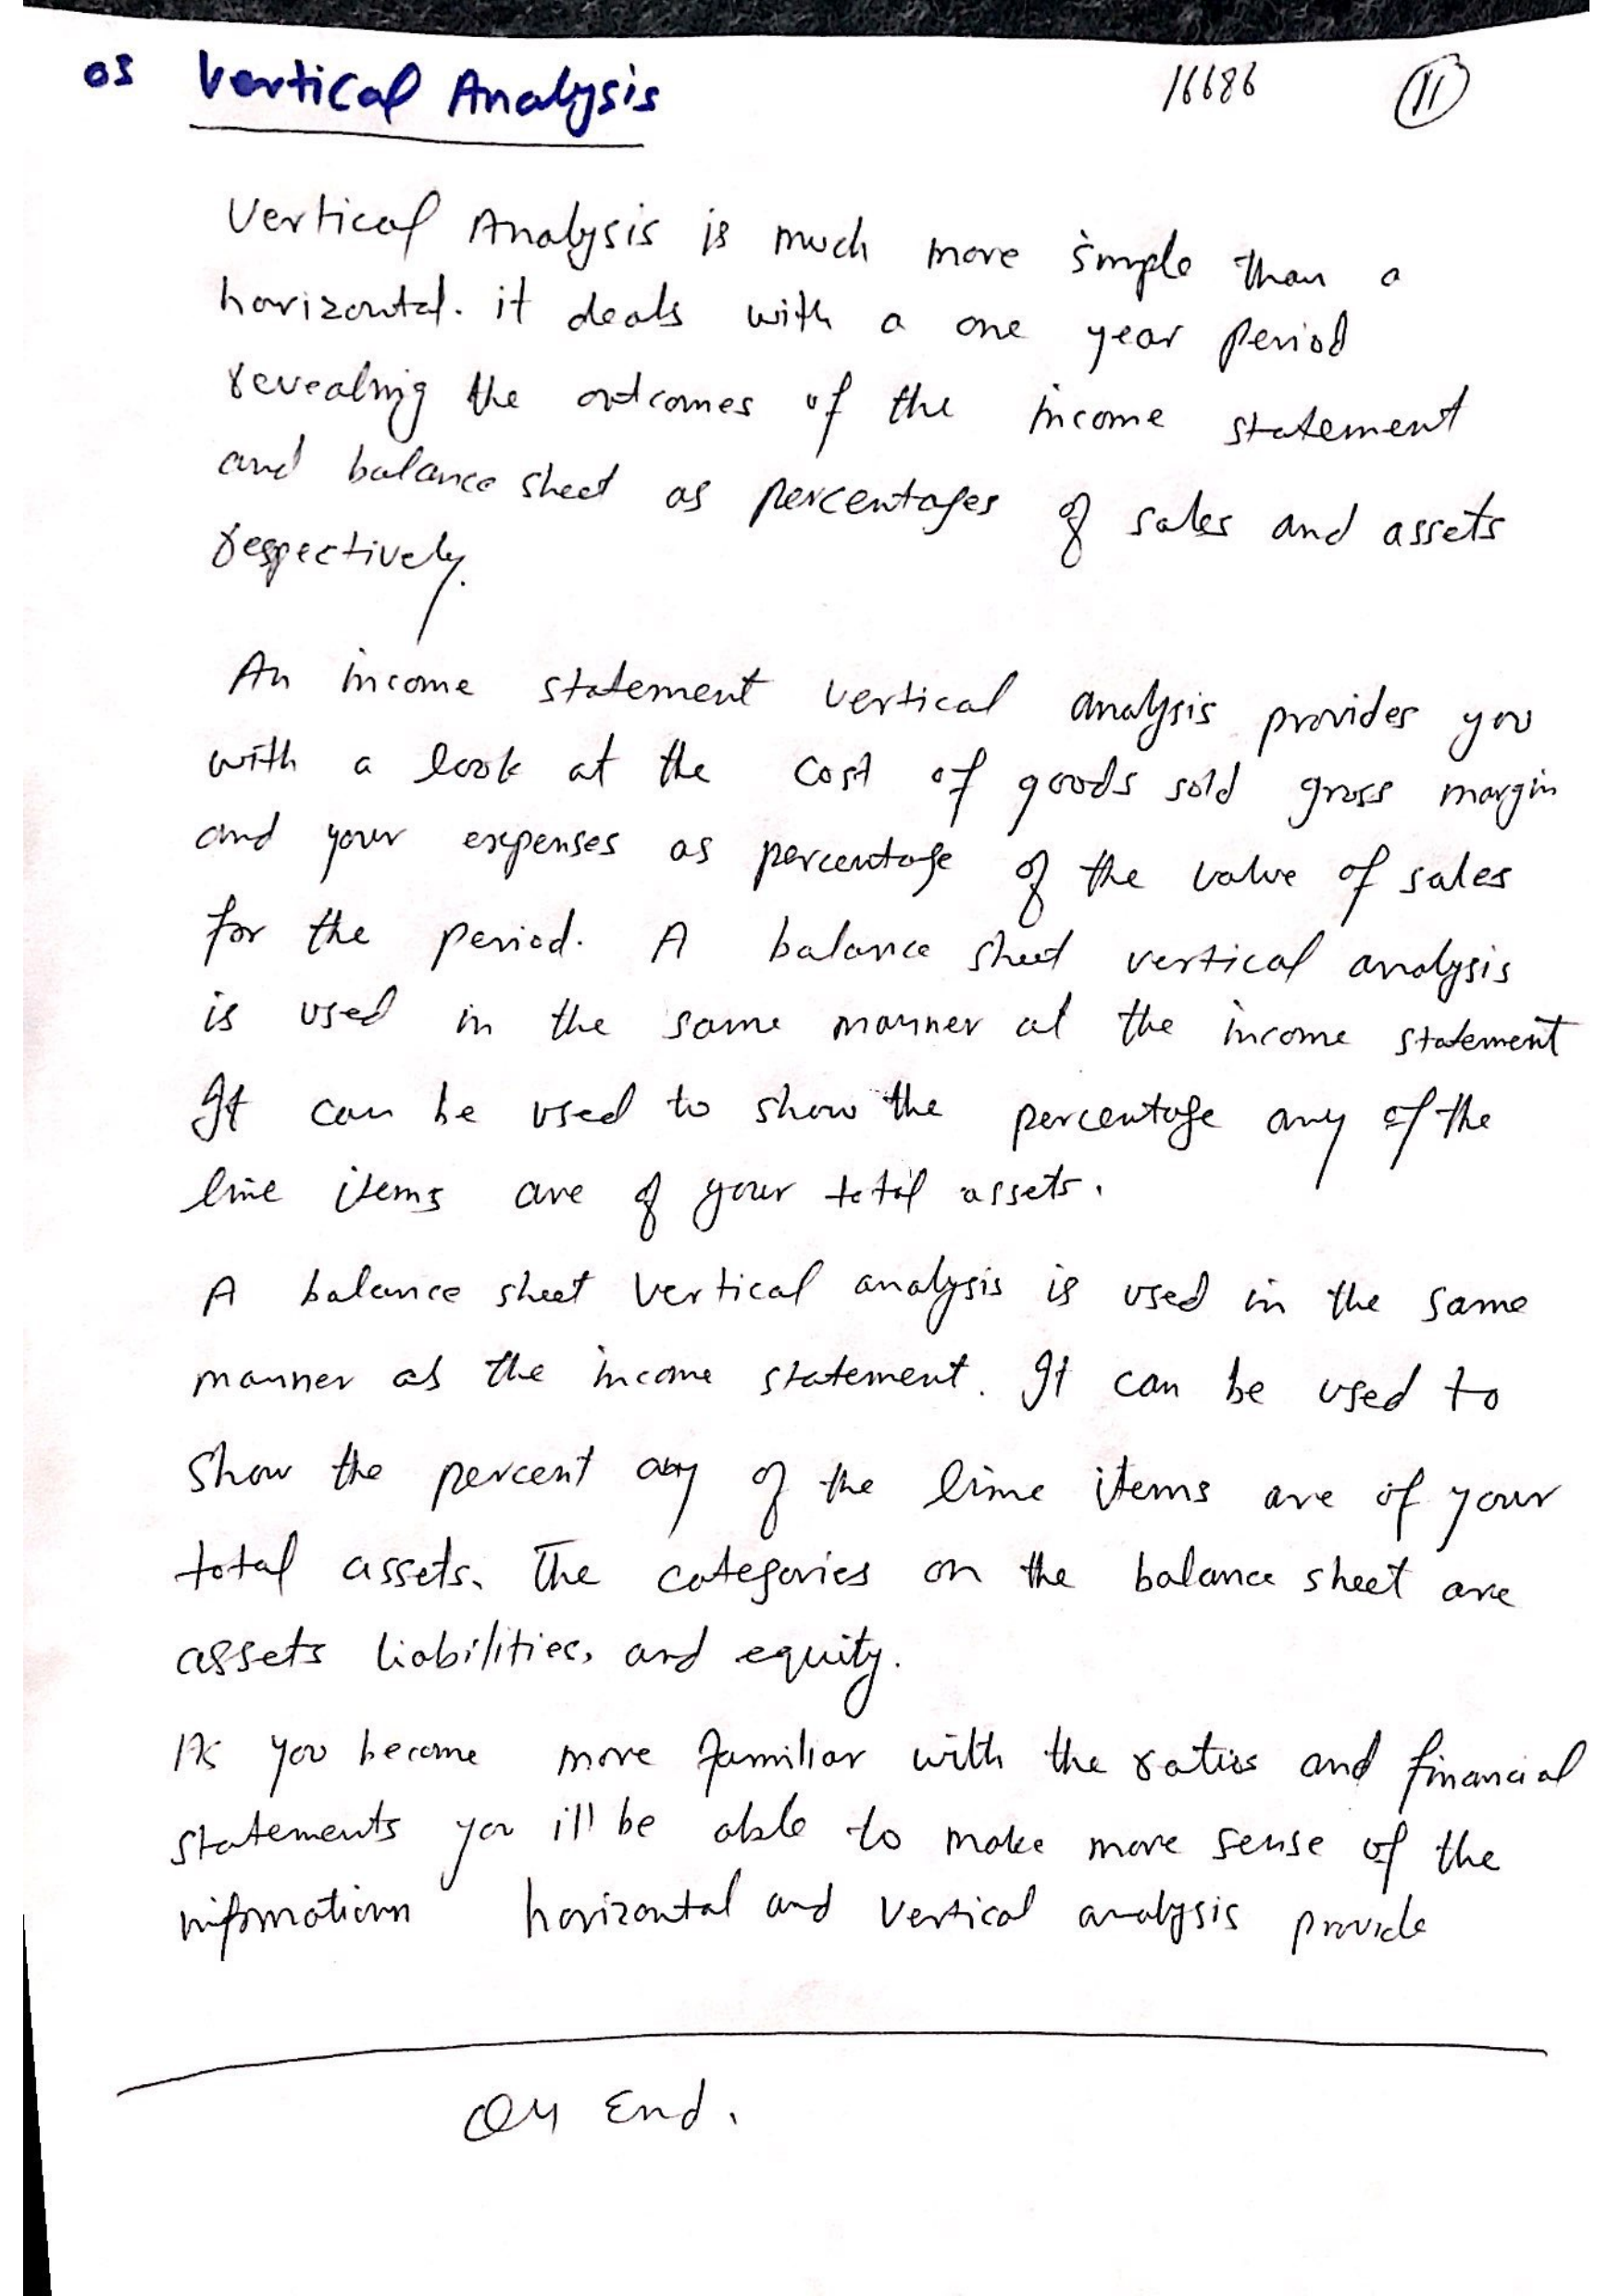 03 Vertical Analysis 16686 11
Vertical Analysis is much more simple than a
horizontal. it deals with a one year period
revealing the outcomes of the income statement
and balance sheet as percentages of sales and assets
respectively.
An income statement vertical analysis provides you
with a look at the cost of goods sold gross margin
and your expenses as percentage of the value of sales
for the period. A balance sheet vertical analysis
is used in the same manner at the income statement
It can be used to show the percentage any of the
line items are of your total assets.
A balance sheet vertical analysis is used in the same
manner as the income statement. It can be used to
show the percent any of the line items are of your
total assets. The categories on the balance sheet are
assets liabilities, and equity.
As you become more familiar with the ratios and financial
statements you ill be able to make more sense of the
information horizontal and vertical analysis provide
Q4 End.